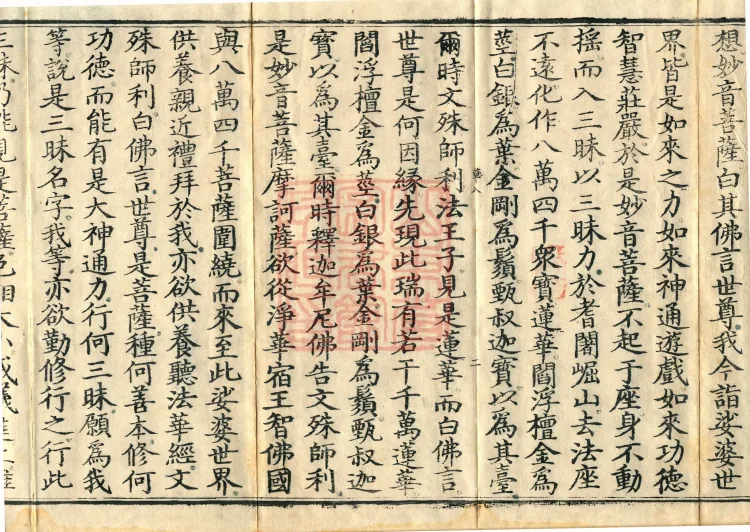 想妙音菩薩白其佛言世尊我今詣娑婆世
界皆是如來之力如來神通遊戲如來功德
智慧莊嚴於是妙音菩薩不起于座身不動
揺而入三昧以三昧力於耆闍崛山去法座
不遠化作八萬四千衆寶蓮華閻浮檀金爲
莖白銀爲葉金剛爲鬚甄叔迦寶以爲其臺
爾時文殊師利法王子見是蓮華而白佛言
世尊是何因緣先現此瑞有若干千萬蓮華
閻浮檀金爲莖白銀爲葉金剛爲鬚甄叔迦
寶以爲其臺爾時釋迦牟尼佛告文殊師利
是妙音菩薩摩訶薩欲從淨華宿王智佛國
與八萬四千菩薩圍繞而來至此娑婆世界
供養親近禮拜於我亦欲供養聽法華經文
殊師利白佛言世尊是菩薩種何善本修何
功德而能有是大神通力行何三昧願爲我
等說是三昧名字我等亦欲勤修行之行此
三昧乃能見是菩薩色相大小威儀進止